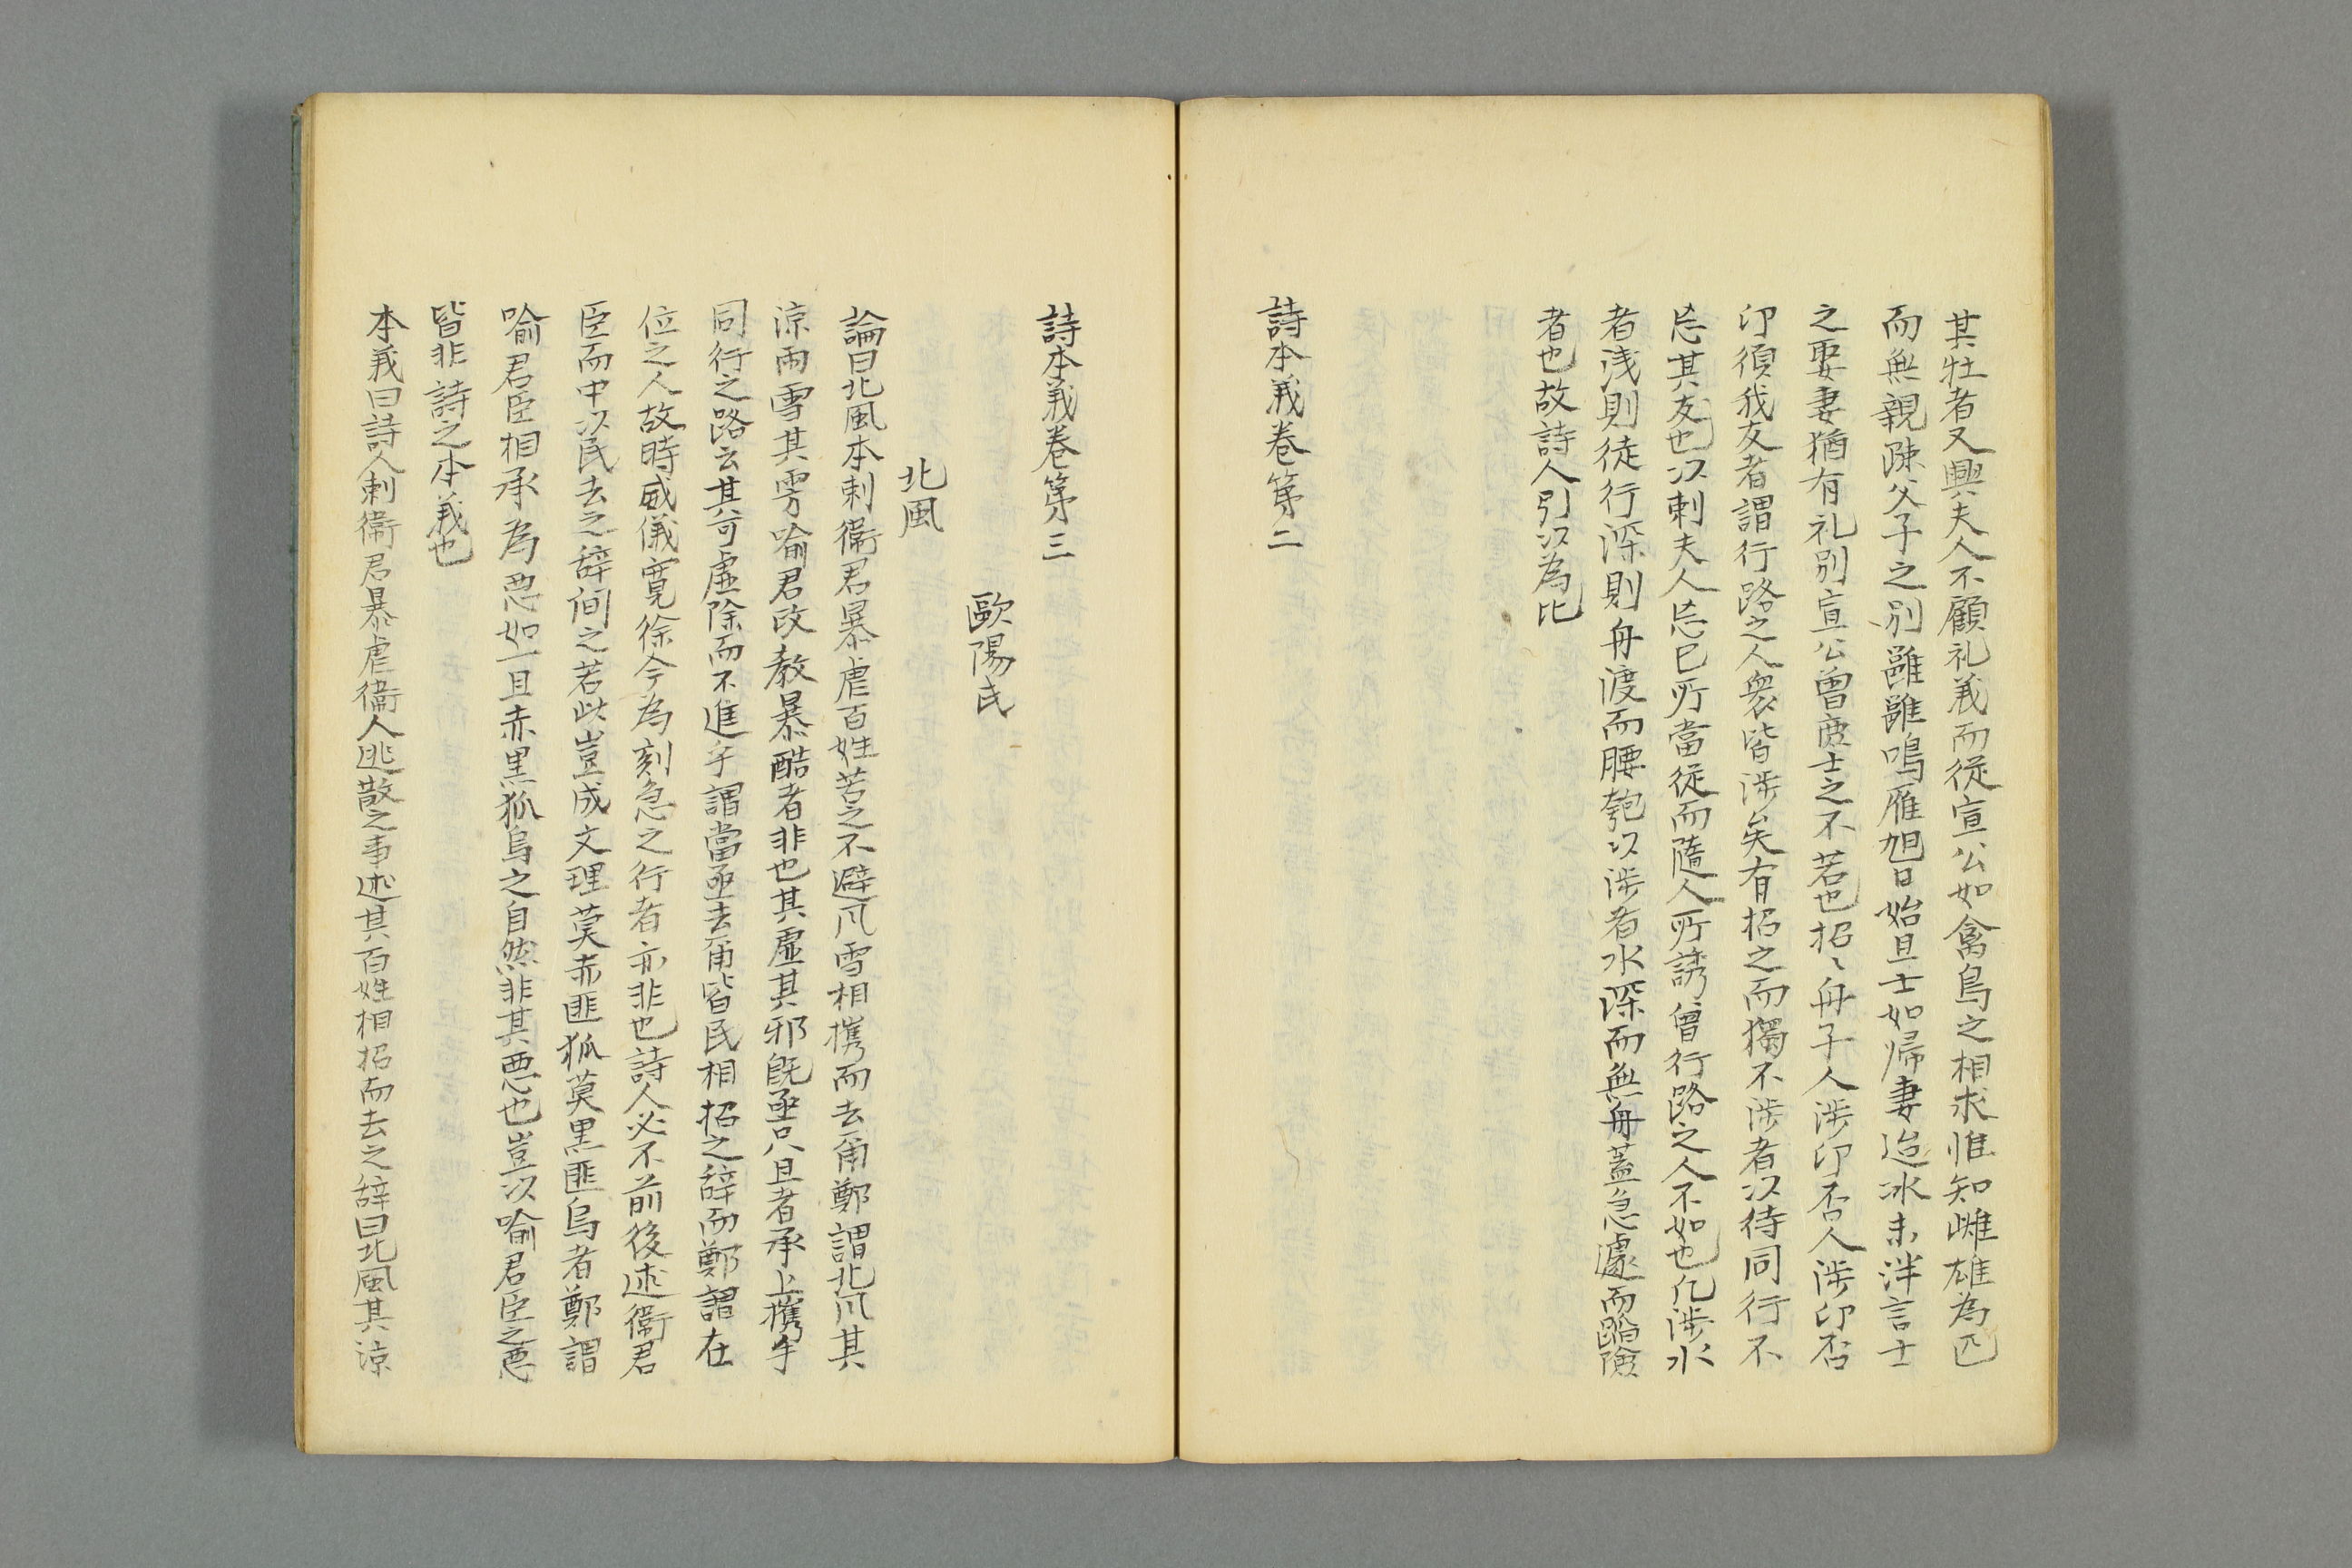 其牡者又興夫人不顧礼義而従宣公如禽鳥之相求惟知雌雄為匹
而無親踈父子之別雝雝鳴雁旭日始旦士如帰妻迨冰未泮言士
之娶妻猶有礼別宣公曽庻士之不若也招〻舟子人渉卬否人渉卬否
卬須我友者謂行路之人衆皆渉矣有招之而獨不渉者以待同行不
忘其友也以刺夫人忘已所當従而隨人所誘曽行路之人不如也凡渉水
者浅則徒行深則舟渡而腰匏以渉者水深而無舟蓋急遽而蹈險
者也故詩人引以為比
詩本義巻第二
詩本義巻第三
歐陽氏
北風
論曰北風本刺衞君暴虐百姓苦之不避風雪相携而去甭鄭謂北風其
涼雨雪其雱喻君政教暴酷者非也其虚其邪既亟只且者承上携手
同行之路云其可虚除而不進乎謂當亟去甭皆民相招之辞而鄭謂在
位之人故時威儀寛徐今為刻急之行者亦非也詩人必不前後述衞君
臣而中以民去之辞間之若此豈成文理莫赤匪狐莫黒匪烏者鄭謂
喻君臣相承為悪如一且赤黒狐烏之自然非其悪也豈以喻君臣之悪
皆非詩之本義也
本義曰詩人刺衞君暴虐衞人逃散之事述其百姓相招而去之辞曰北風其涼